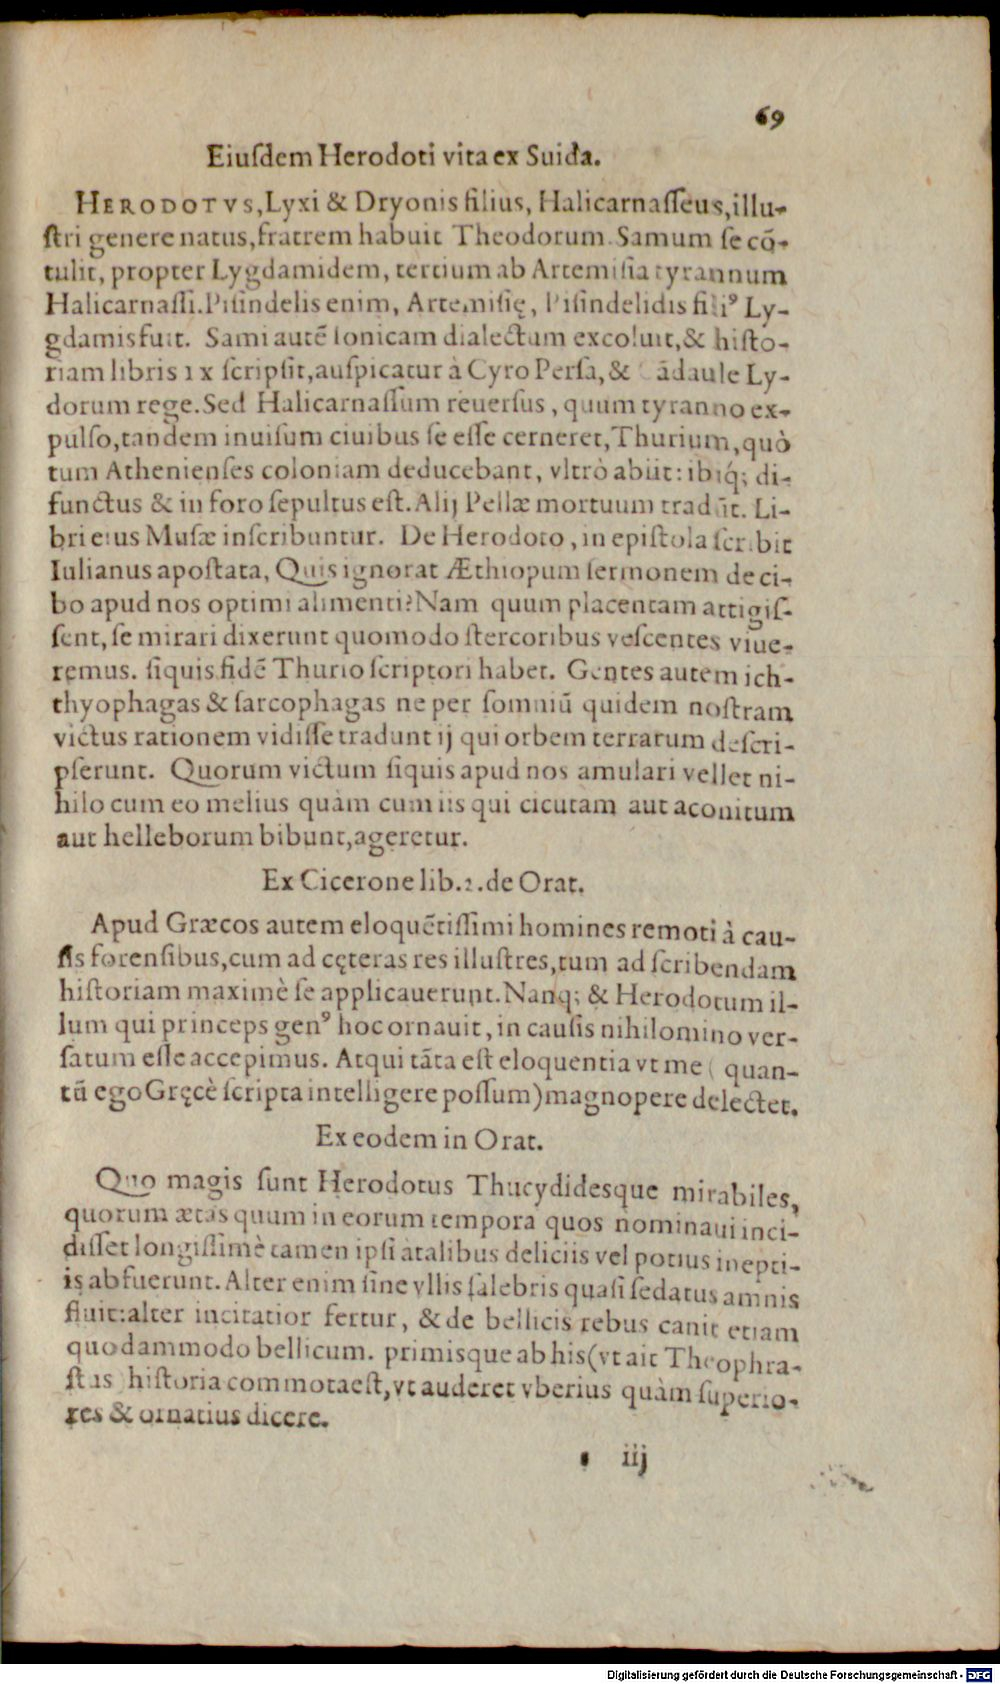 69
Eiusdem Herodoti vita ex Suida.
HERODOTVS, Lyxi & Dryonis filius, Halicarnaſſeus, illu-
ſtri genere natus, fratrem habuit Theodorum. Samum ſe cō-
tulit, propter Lygdamidem, tertium ab Artemiſia tyrannum
Halicarnaſſi. Piſindelis enim, Artemiſię, Piſindelidis filiꝰ Ly-
gdamis fuit. Sami autē Ionicam dialectum excoluit, & hiſto-
riam libris IX ſcripſit, auſpicatur à Cyro Perſa, & Cādaule Ly-
dorum rege. Sed Halicarnaſſum reuerſus, quum tyranno ex-
pulſo, tandem inuiſum ciuibus ſe eſſe cerneret, Thurium, quò
tum Athenienſes coloniam deducebant, vltrò abiit: ibiq́; di-
functus & in foro ſepultus eſt. Alij Pellæ mortuum tradūt. Li-
bri eius Muſæ inſcribuntur. De Herodoto, in epiſtola ſcribit
Iulianus apoſtata, Quis ignorat Æthiopum ſermonem de ci-
bo apud nos optimi alimenti? Nam quum placentam attigiſ-
ſent, ſe mirari dixerunt quomodo ſtercoribus veſcentes viue-
remus. ſiquis fidē Thurio ſcriptori habet. Gentes autem ich-
thyophagas & ſarcophagas ne per ſomniū quidem noſtram
victus rationem vidiſſe tradunt ij qui orbem terrarum deſcri-
pſerunt. Quorum victum ſiquis apud nos amulari vellet ni-
hilo cum eo melius quàm cum iis qui cicutam aut aconitum
aut helleborum bibunt, ageretur.
Ex Cicerone lib. 2. de Orat.
Apud Græcos autem eloquētiſſimi homines remoti à cau-
ſis forenſibus, cum ad cęteras res illuſtres, tum ad ſcribendam
hiſtoriam maximè ſe applicauerunt. Nanq; & Herodotum il-
lum qui princeps genꝰ hoc ornauit, in cauſis nihil omino ver-
ſatum eſſe accepimus. Atqui tāta eſt eloquentia vt me (quan-
tū ego Gręcè ſcripta intelligere poſſum) magnopere delectet.
Ex eodem in Orat.
Quo magis ſunt Herodotus Thucydidesque mirabiles,
quorum ætas quum in eorum tempora quos nominaui inci-
diſſet longiſſimè tamen ipſi a talibus deliciis vel potius inepti-
is abfuerunt. Alter enim ſine vllis ſalebris quaſi ſedatus amnis
fluit: alter incitatior fertur, & de bellicis rebus canit etiam
quodammodo bellicum. primisque ab his (vt ait Theophra-
ſtus hiſtoria commota eſt, vt auderet vberius quàm ſuperio-
res & ornatius dicere.
iij
Digitalisierung gefördert durch die Deutsche Forschungsgemeinschaft - DFG